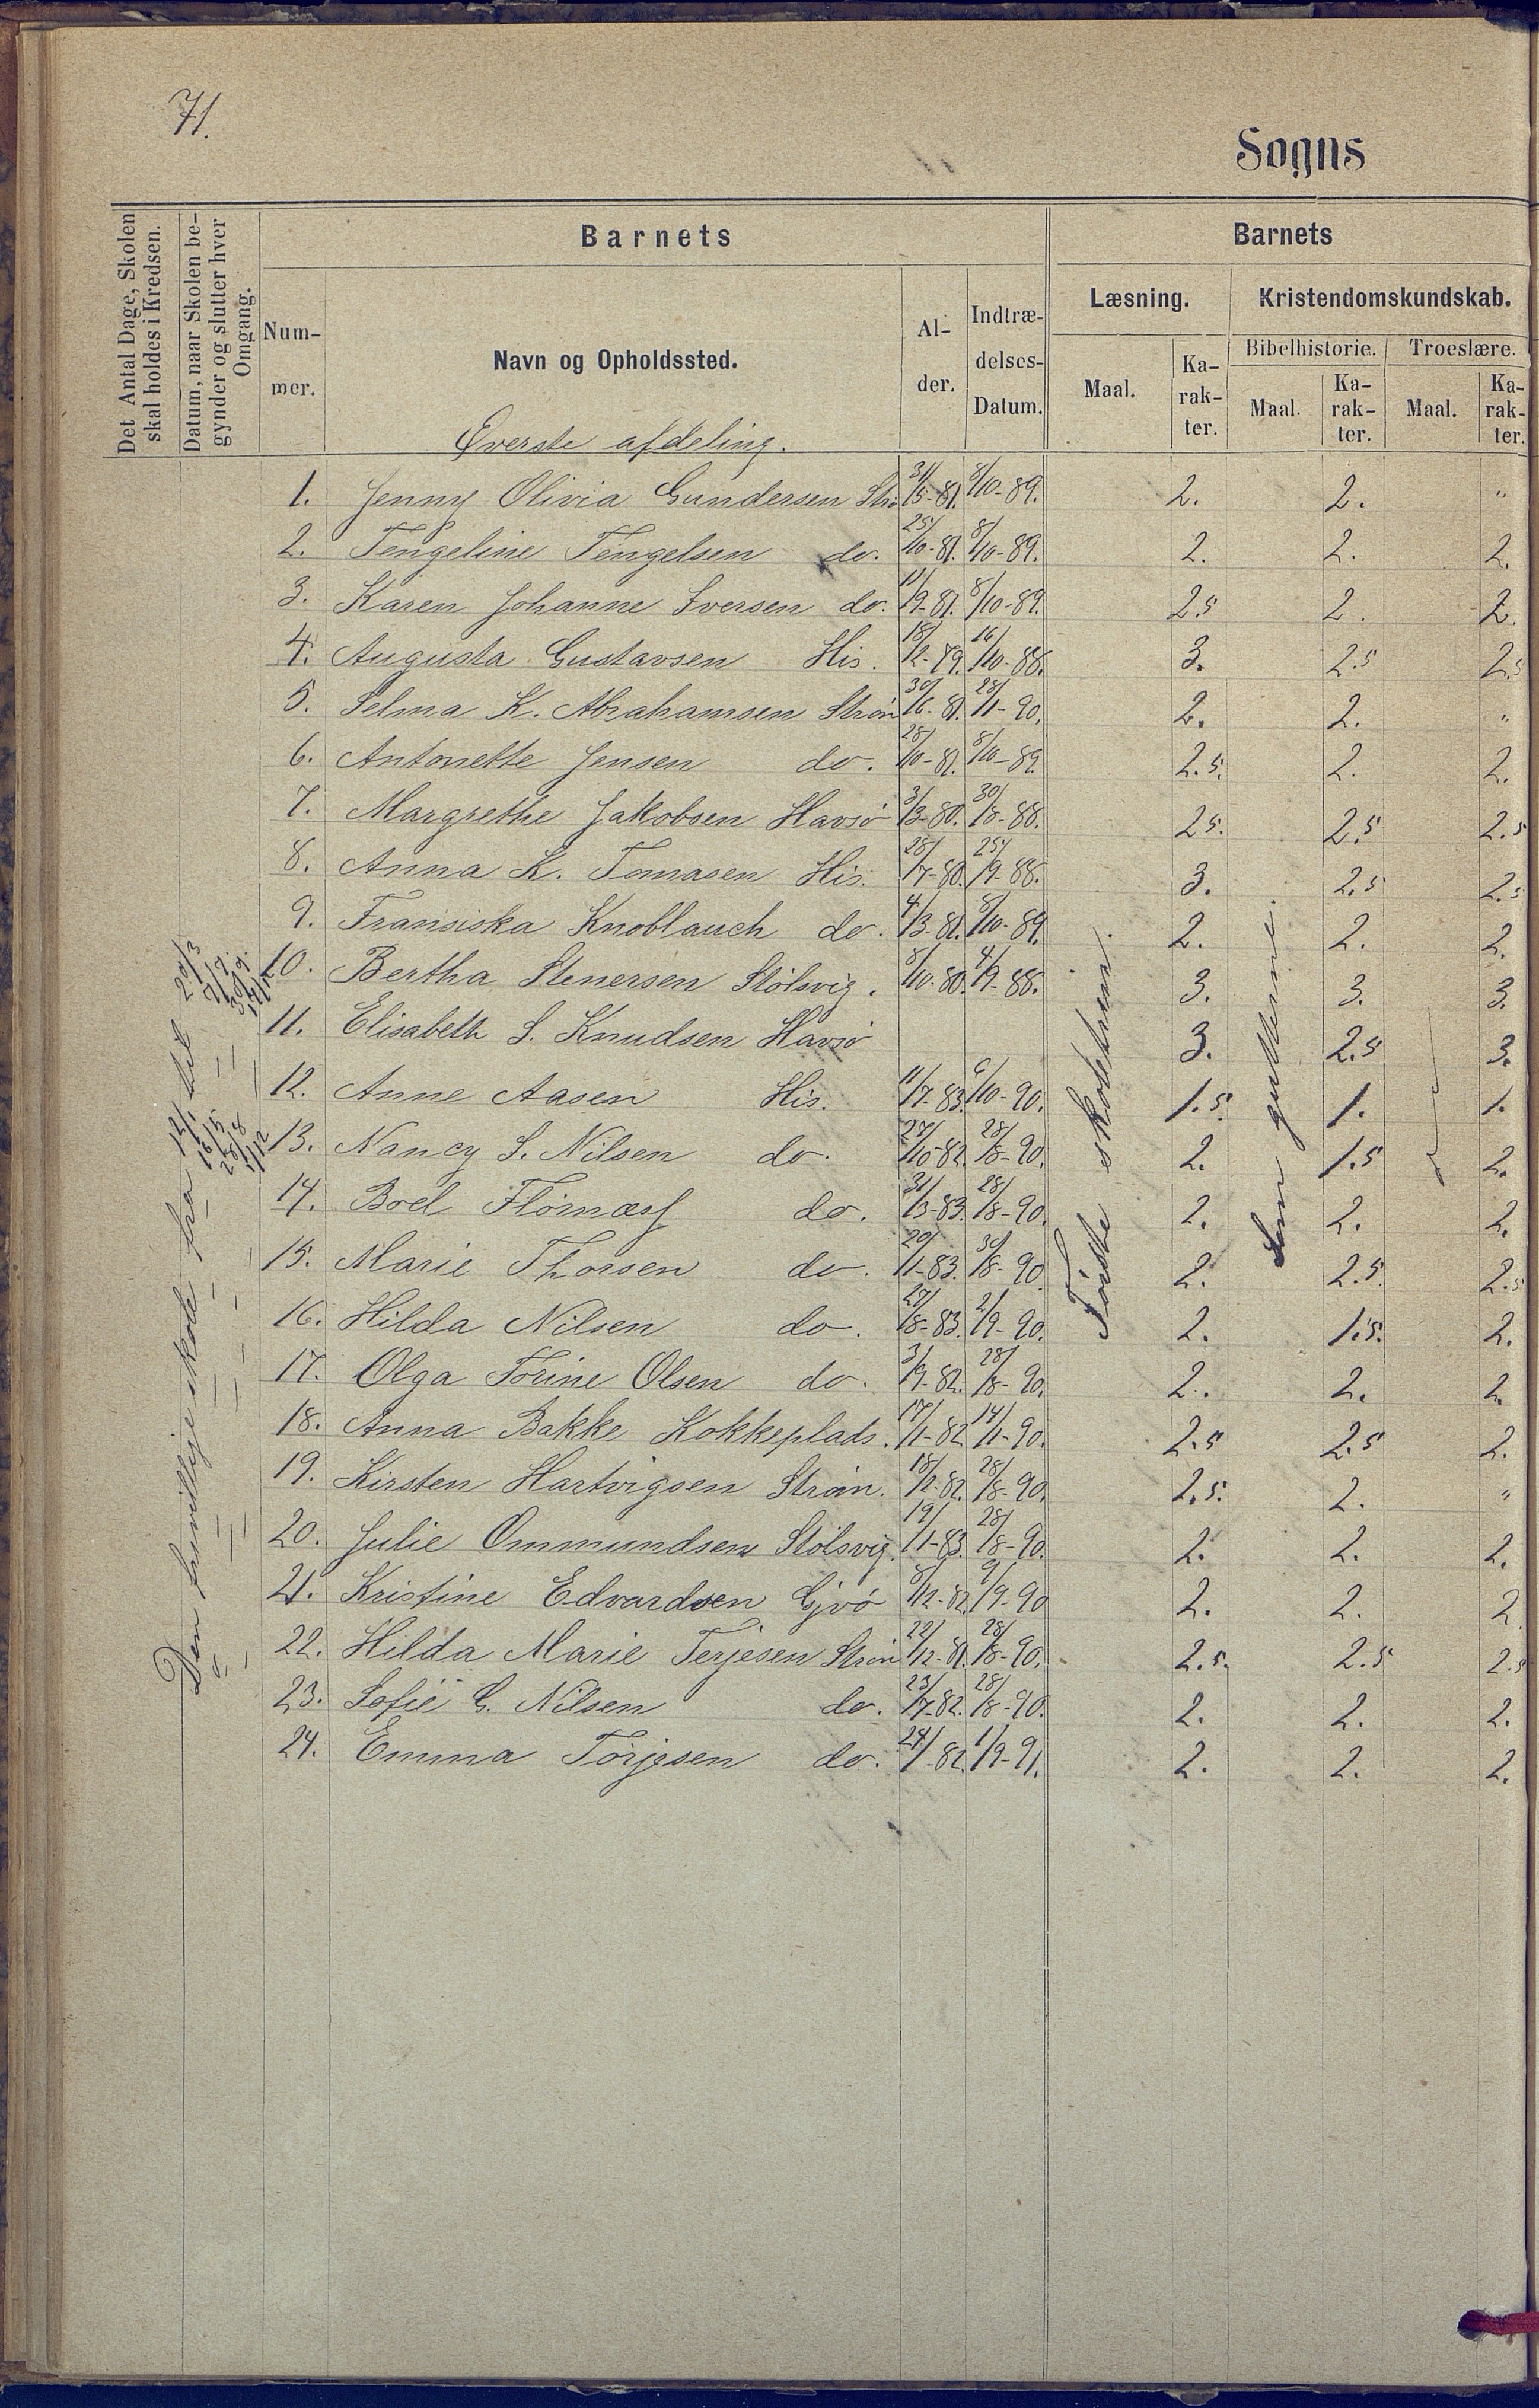 71.
Sogns
Det Antal Dage, Skolen skal holdes i Kredsen.
Datum, naar Skolen begynder og slutter hver Omgang.
Barnets
Barnets
Nummer.
Navn og Opholdssted.
Alder.
Indtrædelses-Datum.
Læsning.
Kristendomskundskab.
Maal.
Karakter.
Bibelhistorie.
Troeslære.
Maal.
Karakter.
Maal.
Karakter.
Øverste afdeling.
1. Jenny Olivia Gundersen Strø 31/5-81. 8/10-89. 2. 2. "
2. Tengeline Tengelsen do. 25/10-81. 8/10-89. 2. 2. 2.
3. Karen Johanne Iversen do. 11/9-81. 8/10-89. 2.5 2. 2.
4. Augusta Gustavsen His. 18/2-79. 16/10-88. 3. 2.5 2.5
5. Selma K. Abrahamsen Strøm 30/6-81. 28/1-90. 2. 2. "
6. Antonette Jensen do. 28/10-81. 8/10-89. 2.5. 2. 2.
7. Margrethe Jakobsen Havsø 3/3-80. 30/8-88. 2.5. 2.5 2.5
8. Anna K. Tomasen His. 28/7-80. 25/9-88. 3. 2.5 2.5
9. Fransiska Knoblauch do. 4/3-81. 8/10-89. 2. 2. 2.
10. Bertha Stenersen Stølsvig. 8/10-80. 4/9-88. 3. 3. 3.
11. Elisabeth S. Knudsen Havsø 3. 2.5 3.
12. Anne Aasen His. 11/7-83. 6/10-90. 1.5. 1. 1.
13. Nancy S. Nilsen do. 27/10-82. 28/8-90. 2. 1.5 2.
14. Boel Flørnæs do. 31/3-83. 28/8-90. 2. 2. 2.
15. Marie Thorsen do. 20/1-83. 30/8-90. 2. 2.5. 2.5
16. Hilda Nilsen do. 27/8-83. 2/9-90. 2. 1.5. 2.
17. Olga Torine Olsen do. 3/9-82. 28/8-90. 2. 2. 2.
18. Anna Bakke Kokkeplads. 17/1-82. 14/1-90. 2.5 2.5 2.
19. Kirsten Hartvigsen Strøm. 18/2-82. 28/8-90. 2.5. 2. "
20. Julie Ommundsen Stølsvig. 19/1-83. 28/8-90. 2. 2. 2.
21. Kristine Edvardsen Gjvø 8/12-82. 9/9-90 2. 2. 2
22. Hilda Marie Terjesen Strøm 22/12-81. 28/8-90. 2.5. 2.5 2.5
23. Sofie G. Nilsen do. 23/7-82. 28/8-90. 2. 2. 2.
24. Emma Torjesen do. 24/ -82. 1/9-91. 2. 2. 2.
Den frivillige skole fra 12/1 til 20/3
16/5 2/7.
28/8 30/9.
1/12 17/12
Tiende skoletrin.
Som gutterne.